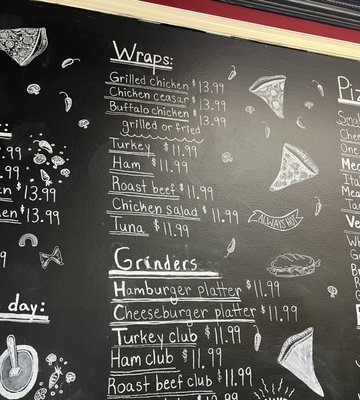 Wraps:
Grilled chicken $13.99
Chicken ceasar $13.99
Buffalo chicken $13.99
grilled or fried
Turkey $11.99
Ham $11.99
Roast beef $11.99
Chicken salad $11.99
Tuna $11.99
ALWAYS HOT
Grinders
Hamburger platter $11.99
Cheeseburger platter $11.99
Turkey club $11.99
Ham club $11.99
Roast beef club $11.99
$13.99
$13.99
day: